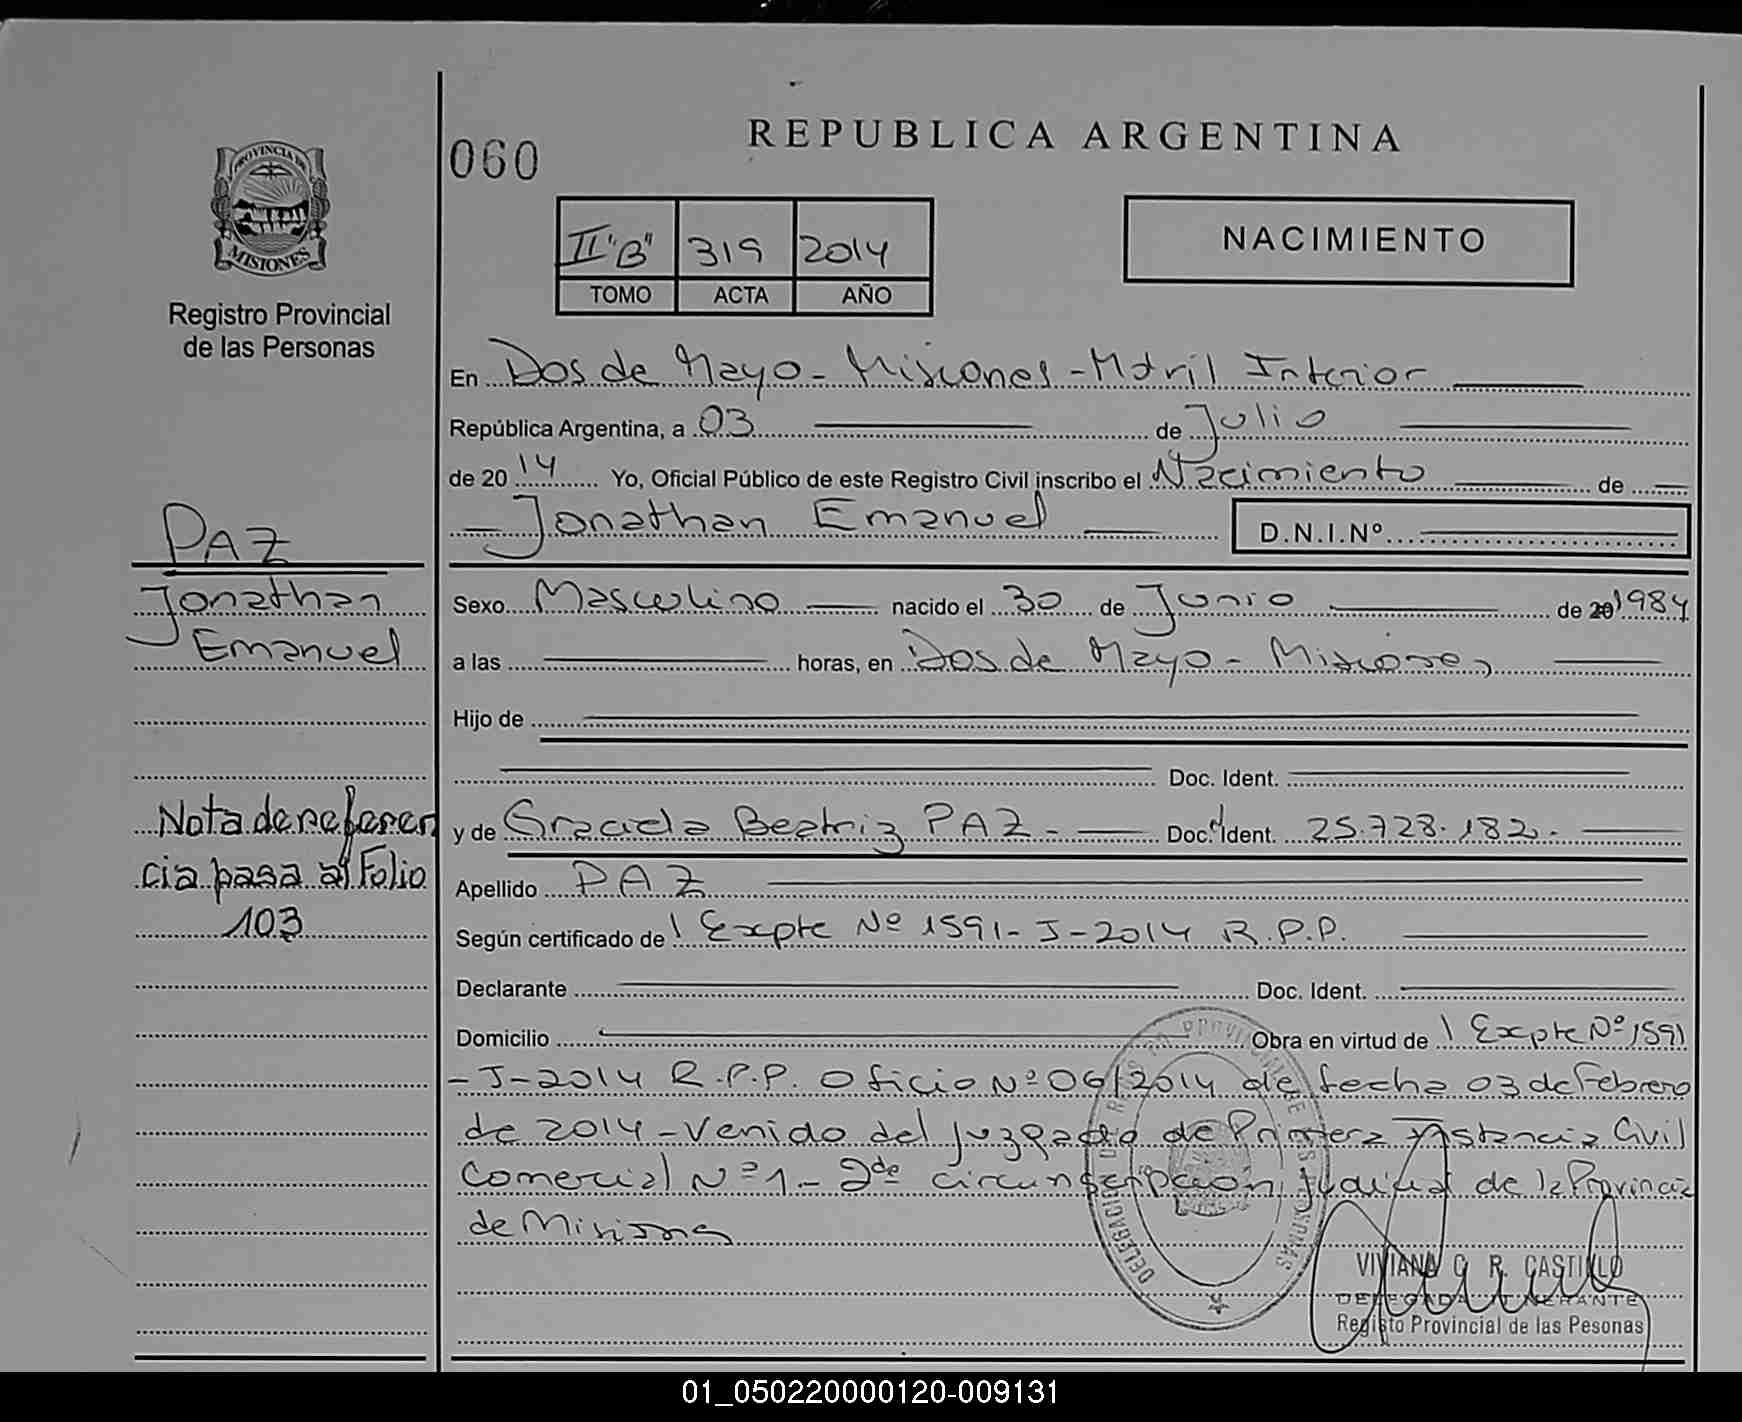 REPUBLICA ARGENTINA
060
PROVINCIA DE
MISIONES
Registro Provincial
de las Personas
II "B" 319 2014
TOMO ACTA AÑO
NACIMIENTO
En Dos de Mayo - Misiones - Móvil Interior
República Argentina, a 03 de Julio
de 2014 Yo, Oficial Público de este Registro Civil inscribo el Nacimiento de
Jonathan Emanuel D.N.I.Nº
PAZ
Jonathan
Emanuel
Sexo Masculino nacido el 30 de Junio de 20 1984
a las horas, en Dos de Mayo - Misiones
Hijo de
Doc. Ident.
Nota de referen
cia pasa al Folio
103
y de Graciela Beatriz PAZ - Doc. Ident. 25.728.182.
Apellido PAZ
Según certificado de Expte Nº 1591-J-2014 R.P.P.
Declarante Doc. Ident.
Domicilio Obra en virtud de Expte Nº 1591
-J-2014 R.P.P. Oficio Nº 06/2014 de fecha 03 de Febrero
de 2014 - Venido del Juzgado de Primera Instancia Civil
Comercial Nº 1 - 2da circunscripcion Judicial de la Provincia
de Misiones
VIVIANA C. R. CASTILLO
DELEGADA ITINERANTE
Registo Provincial de las Pesonas
01_050220000120-009131